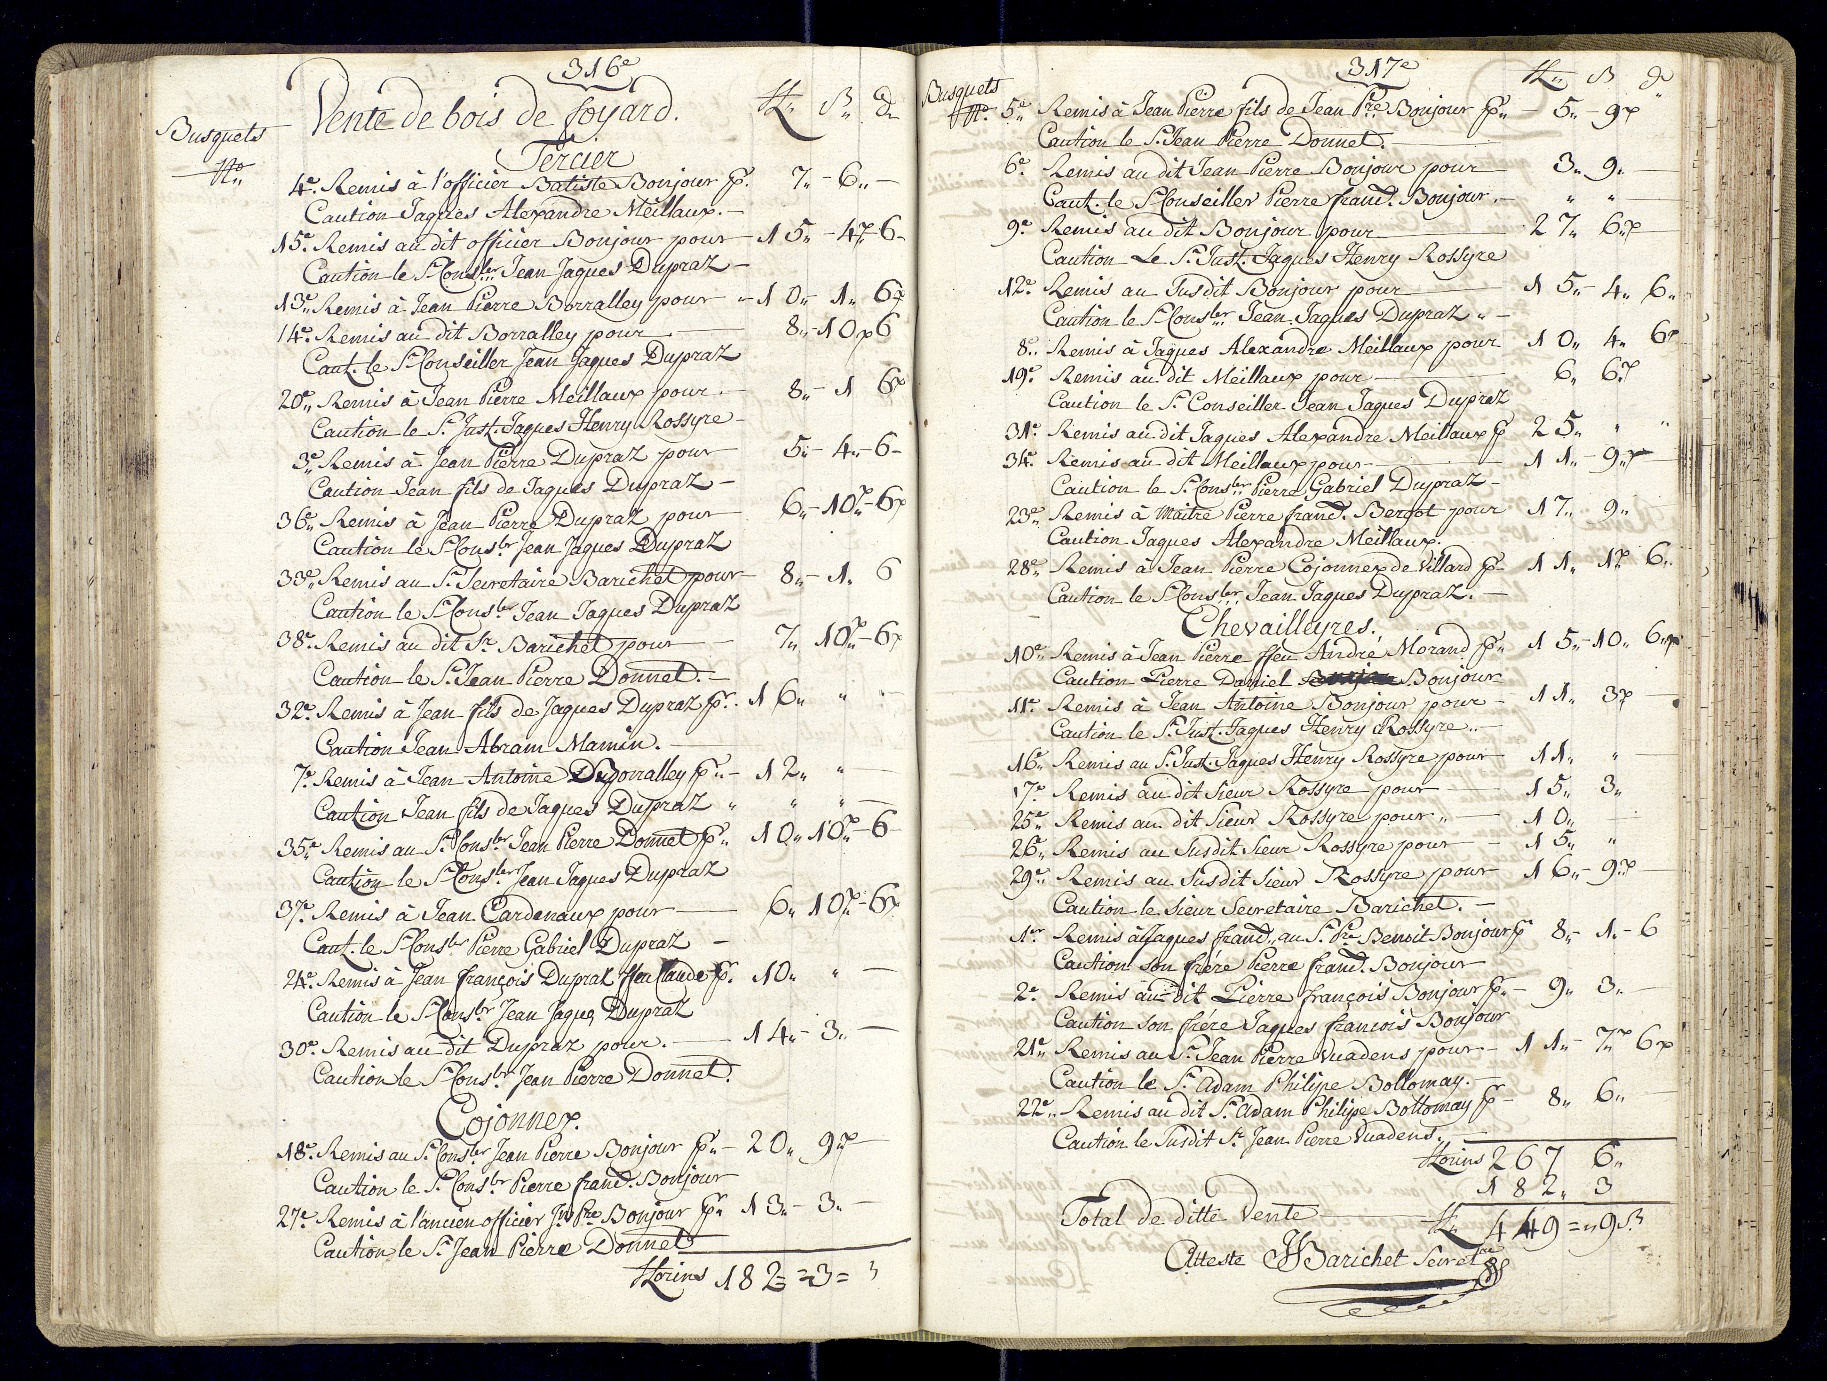 316e
Vente de bois de foyard. fl„ ß„ d„
Busquets
No„
Tercier
4e. Remis à l'officier Batiste Bonjour p. 7„-6„-
Caution Jaques Alexandre Meillaux.-
15e. Remis au dit officier Bonjour pour 15„-4„-6-
Caution le Sr. Conser Jean Jaques Dupraz-
13e Remis à Jean Pierre Borralley pour 10„-1„ 6
14e. Remis au dit Borralley pour 8„-10„6
Caut. le Sr. Conseiller Jean Jaques Dupraz
20e„ Remis à Jean Pierre Meillaux pour. 8„-1 6
Caution le Sr. Just. Jaques Henry Rossyre-
3e„ Remis à Jean Pierre Dupraz pour 5„-4„-6-
Caution Jean fils de Jaques Dupraz-
36e„ Remis à Jean Pierre Dupraz pour 6„-10„-6
Caution le Sr. Conser Jean Jaques Dupraz
33e„ Remis au Sr. Secretaire Barichet pour 8„-1„ 6
Caution le Sr. Conser Jean Jaques Dupraz
38e. Remis au dit Sr. Barichet pour 7„ 10„-6
Caution le Sr. Jean Pierre Donnet.-
32e. Remis à Jean fils de Jaques Dupraz pr. 16„ „ „
Caution Jean Abram Mamin.-
7e. Remis à Jean Antoine Borralley p„- 12„ „-
Caution Jean fils de Jaques Dupraz „ „ „-
35e„ Remis au Sr. Conser Jean Pierre Donnet p„ 10„ 10„-6
Caution le Sr. Conser Jean Jaques Dupraz
37e. Remis à Jean Cardenaux pour 6„ 10„-6
Caut. le Sr. Conser Pierre Gabriel Dupraz-
24e. Remis à Jean françois Dupraz ffeu Claude p. 10„ „-
Caution le Sr. Conser Jean Jaques Dupraz
30e. Remis au dit Dupraz pour.- 14„-3„-
Caution le Sr. Conser Jean Pierre Donnet.
Cojonnex.
18e. Remis au Sr. Conser Jean Pierre Bonjour p„- 20„ 9„-
Caution le Sr. Conser Pierre frand. Bonjour
27e. Remis à l'ancien officier Jn Pre Bonjour p„ 13„-3„-
Caution le Sr. Jean Pierre Donnet
fflorins 182=„3=„
317e
Busquets fl„ ß d„
No. 5e„ Remis à Jean Pierre fils de Jean Pre. Bonjour p„- 5„-9
Caution le Sr. Jean Pierre Donnet.
6e. Remis au dit Jean Pierre Bonjour pour 3„ 9„-
Caut. le Sr. Conseiller Pierre frand. Bonjour.- „ „
9e. Remis au dit Bonjour pour 27„ 6„-
Caution Le Sr. Just. Jaques Henry Rossyre
12e. Remis au Susdit Bonjour pour 15„-4„ 6„
Caution le Sr. Conser Jean Jaques Dupraz „-
8e„ Remis à Jaques Alexandre Meillaux pour 10„ 4„ 6
19e. Remis au dit Meillaux pour 6„ 6„
Caution le Sr. Conseiller Jean Jaques Dupraz
31e. Remis au dit Jaques Alexandre Meillaux p 25„ „ „
34e. Remis au dit Meillaux pour 11„-9„-
Caution le Sr. Conser Pierre Gabriel Dupraz-
23e„ Remis à Maitre Pierre frand. Bergot pour 17„ 9„-
Caution Jaques Alexandre Meillaux.
28e„ Remis à Jean Pierre Cojonnex de Villard p- 11„ 1 6„
Caution le Sr. Conser Jean Jaques Dupraz.-
Chevailleyres.
10e„ Remis à Jean Pierre ffeu André Morand p„ 15„-10„ 6„
Caution Pierre Daniel Bonjour
11e. Remis à Jean Antoine Bonjour pour- 11„ 3-
Caution le Sr. Just. Jaques Henry Rossyre„-
16e„ Remis au Sr. Just. Jaques Henry Rossyre pour 11„ „
17e Remis au dit Sieur Rossyre pour 15„ 3„
25e„ Remis au dit Sieur Rossyre pour„ 10„
26e„ Remis au Susdit Sieur Rossyre pour- 15„ „
29e„ Remis au Susdit Sieur Rossyre pour 16„-9„-
Caution le Sieur Secretaire Barichet.-
1er Remis à Jaques frand., au Sr. Pre Benoit Bonjour p 8„-1„-6
Caution son frère Pierre frand. Bonjour
2e. Remis au dit Pierre françois Bonjour p„- 9„ 3„-
Caution son frére Jaques francois Bonjour
21e„ Remis au Sr. Jean Pierre Vuadens pour- 11„-7„ 6
Caution le Sr. Adam Philipe Bottomay.-
22e„ Remis au dit Sr. Adam Philipe Bottomay p- 8„ 6„-
Caution le Susdit Sr. Jean Pierre Vuadens.-
fflorins 267 6„
182„ 3
Total de ditte Vente fl„ 449=„9 ß
Atteste JJ Barichet Secretre